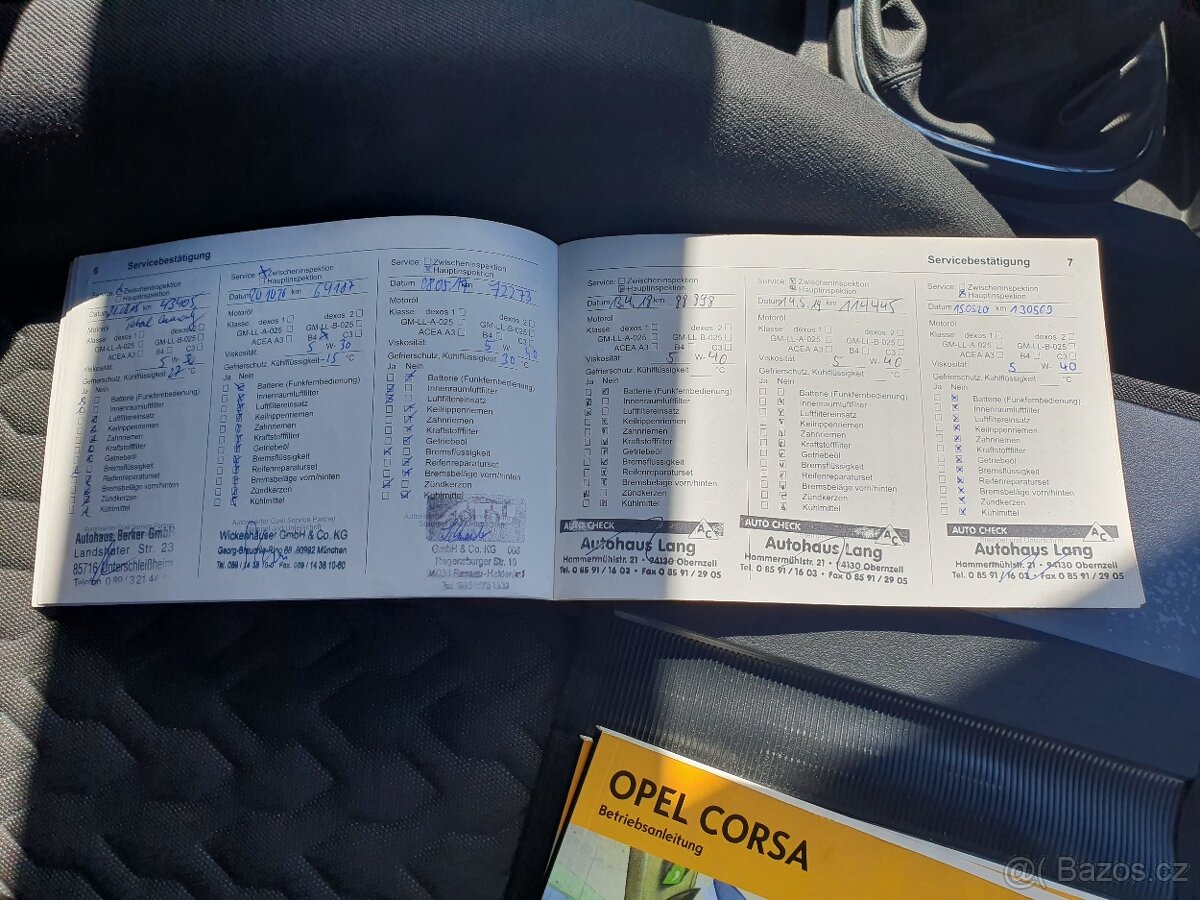 6 Servicebestätigung
Service: Zwischeninspektion
Hauptinspektion
Datum km 43405
Motoröl Total
Klasse: dexos 1 dexos 2
GM-LL-A-025 GM-LL-B-025
ACEA A3 B4 C3
Viskosität: 5 W- 30
Gefrierschutz, Kühlflüssigkeit °C
Ja Nein
Batterie (Funkfernbedienung)
Innenraumluftfilter
Luftfiltereinsatz
Keilrippenriemen
Zahnriemen
Kraftstofffilter
Getriebeöl
Bremsflüssigkeit
Reifenreparaturset
Bremsbeläge vorn/hinten
Zündkerzen
Kühlmittel
Autohaus Berker GmbH
Landshuter Str. 23
85716 Unterschleißheim
Telefon 0 89 / 3 21 44
Service: Zwischeninspektion
Hauptinspektion
Datum 201016 km 69117
Motoröl
Klasse: dexos 1 dexos 2
GM-LL-A-025 GM-LL-B-025
ACEA A3 B4 C3
Viskosität: 5 W- 30
Gefrierschutz, Kühlflüssigkeit -15 °C
Ja Nein
Batterie (Funkfernbedienung)
Innenraumluftfilter
Luftfiltereinsatz
Keilrippenriemen
Zahnriemen
Kraftstofffilter
Getriebeöl
Bremsflüssigkeit
Reifenreparaturset
Bremsbeläge vorn/hinten
Zündkerzen
Kühlmittel
Autorisierter Opel Service Partner
Wickenhäuser GmbH & Co. KG
Georg-Brauchle-Ring 68 80992 München
Service: Zwischeninspektion
Hauptinspektion
Datum km 72273
Motoröl
Klasse: dexos 1 dexos 2
GM-LL-A-025 GM-LL-B-025
ACEA A3 B4 C3
Viskosität: 5 W- 40
Gefrierschutz, Kühlflüssigkeit 30 °C
Ja Nein
Batterie (Funkfernbedienung)
Innenraumluftfilter
Luftfiltereinsatz
Keilrippenriemen
Zahnriemen
Kraftstofffilter
Getriebeöl
Bremsflüssigkeit
Reifenreparaturset
Bremsbeläge vorn/hinten
Zündkerzen
Kühlmittel
GmbH & Co. KG
Regensburger Str.
Servicebestätigung 7
Service: Zwischeninspektion
Hauptinspektion
Datum 13.4.18 km 98898
Motoröl
Klasse: dexos 1 dexos 2
GM-LL-A-025 GM-LL-B-025
ACEA A3 B4 C3
Viskosität: 5 W- 40
Gefrierschutz, Kühlflüssigkeit °C
Ja Nein
Batterie (Funkfernbedienung)
Innenraumluftfilter
Luftfiltereinsatz
Keilrippenriemen
Zahnriemen
Kraftstofffilter
Getriebeöl
Bremsflüssigkeit
Reifenreparaturset
Bremsbeläge vorn/hinten
Zündkerzen
Kühlmittel
AUTO CHECK AC
Autohaus Lang
Hammermühlstr. 21 • 94130 Obernzell
Tel. 0 85 91 / 16 03 • Fax 0 85 91 / 29 05
Service: Zwischeninspektion
Hauptinspektion
Datum 14.5.19 km 114445
Motoröl
Klasse: dexos 1 dexos 2
GM-LL-A-025 GM-LL-B-025
ACEA A3 B4 C3
Viskosität: 5 W- 40
Gefrierschutz, Kühlflüssigkeit °C
Ja Nein
Batterie (Funkfernbedienung)
Innenraumluftfilter
Luftfiltereinsatz
Keilrippenriemen
Zahnriemen
Kraftstofffilter
Getriebeöl
Bremsflüssigkeit
Reifenreparaturset
Bremsbeläge vorn/hinten
Zündkerzen
Kühlmittel
AUTO CHECK AC
Autohaus Lang
Hammermühlstr. 21 • 94130 Obernzell
Tel. 0 85 91 / 16 03 • Fax 0 85 91 / 29 05
Service: Zwischeninspektion
Hauptinspektion
Datum 150520 km 130569
Motoröl
Klasse: dexos 1 dexos 2
GM-LL-A-025 GM-LL-B-025
ACEA A3 B4 C3
Viskosität: 5 W- 40
Gefrierschutz, Kühlflüssigkeit °C
Ja Nein
Batterie (Funkfernbedienung)
Innenraumluftfilter
Luftfiltereinsatz
Keilrippenriemen
Zahnriemen
Kraftstofffilter
Getriebeöl
Bremsflüssigkeit
Reifenreparaturset
Bremsbeläge vorn/hinten
Zündkerzen
Kühlmittel
AUTO CHECK AC
Stempel und Unterschrift
Autohaus Lang
Hammermühlstr. 21 • 94130 Obernzell
Tel. 0 85 91 / 16 03 • Fax 0 85 91 / 29 05
OPEL CORSA
Betriebsanleitung
@ Bazos.cz